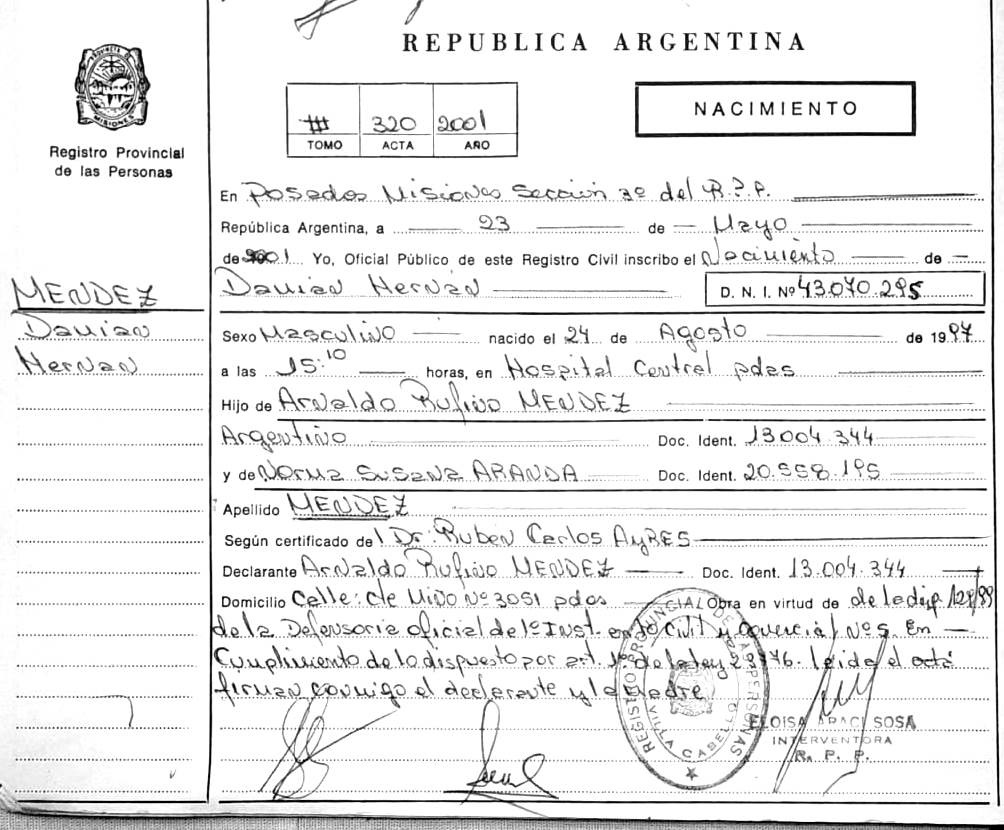 REPUBLICA ARGENTINA
PROVINCIA DE MISIONES
Registro Provincial
de las Personas
320 2001
TOMO ACTA AÑO
NACIMIENTO
En Posadas Misiones Sección 3º del R.P.P.
República Argentina, a 23 de Mayo
de 2001 Yo, Oficial Público de este Registro Civil inscribo el Nacimiento de
Damian Hernán D. N. I. Nº 43.070.295
MENDEZ
Damian
Hernan
Sexo Masculino nacido el 24 de Agosto de 1997
a las 15:10 horas, en Hospital Central pdas
Hijo de Arnaldo Rufino MENDEZ
Argentino Doc. Ident. 13.004.344
y de Norma Susana ARANDA Doc. Ident. 20.558.195
Apellido MENDEZ
Según certificado del Dr. Ruben Carlos AyRES
Declarante Arnaldo Rufino MENDEZ Doc. Ident. 13.004.344
Domicilio Calle: de Nº 3051 pdas Obra en virtud de de la disp.
de la Defensoria oficial de 1º Inst. en lo Civil y Comercial Nº 5. En
Cumplimiento de lo dispuesto por art. 1º de la ley leida el acta
firman conmigo el declarante y la Madre
REGISTRO PROVINCIAL DE LAS PERSONAS
VILLA CABELLO
ELOISA ARACI SOSA
INTERVENTORA
R. P. P.